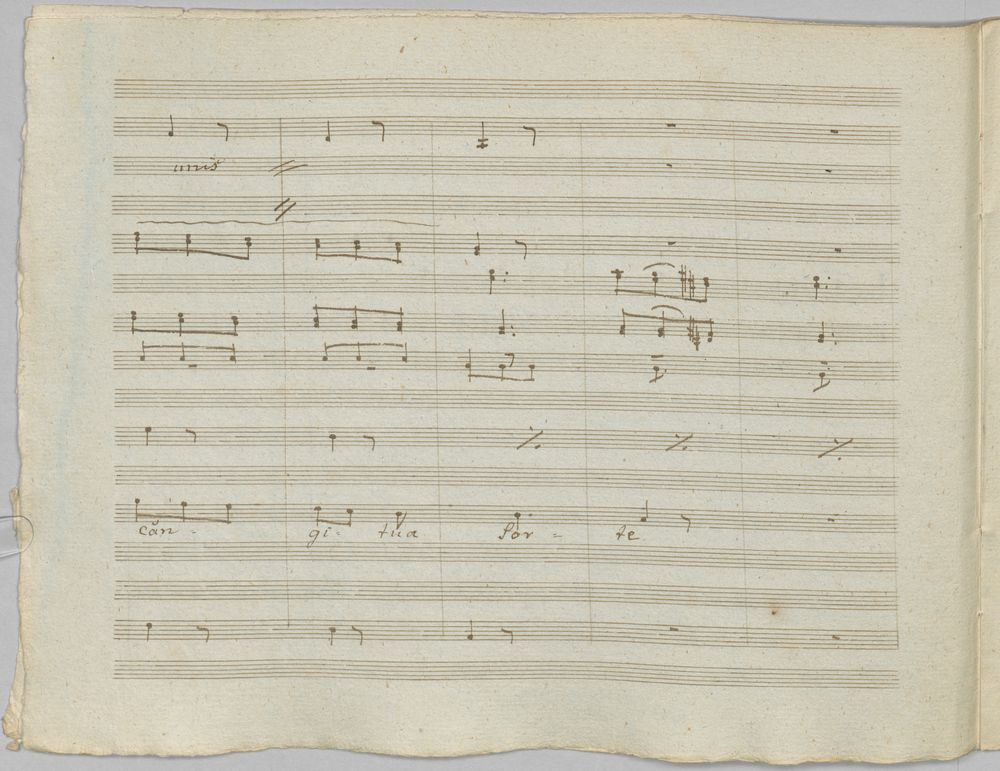 unis
căn- gi- tua Sor= te